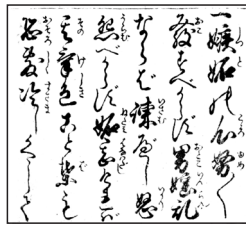 一嫉妬の心努〱
發すべからず男婬乱
ならば諫べし怒
怨べからず妬甚しければ
其氣色言葉も
恐敷冷しくして